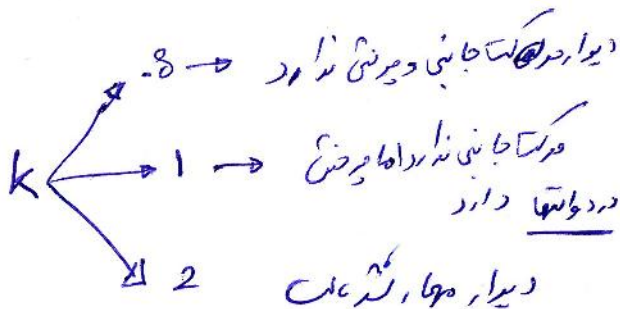 .8 → دیوار حرکت جانبی و چرخشی ندارد
k → 1 → حرکت جانبی ندارد اما چرخش
در دو انتها دارد
2 دیوار مهار نشده